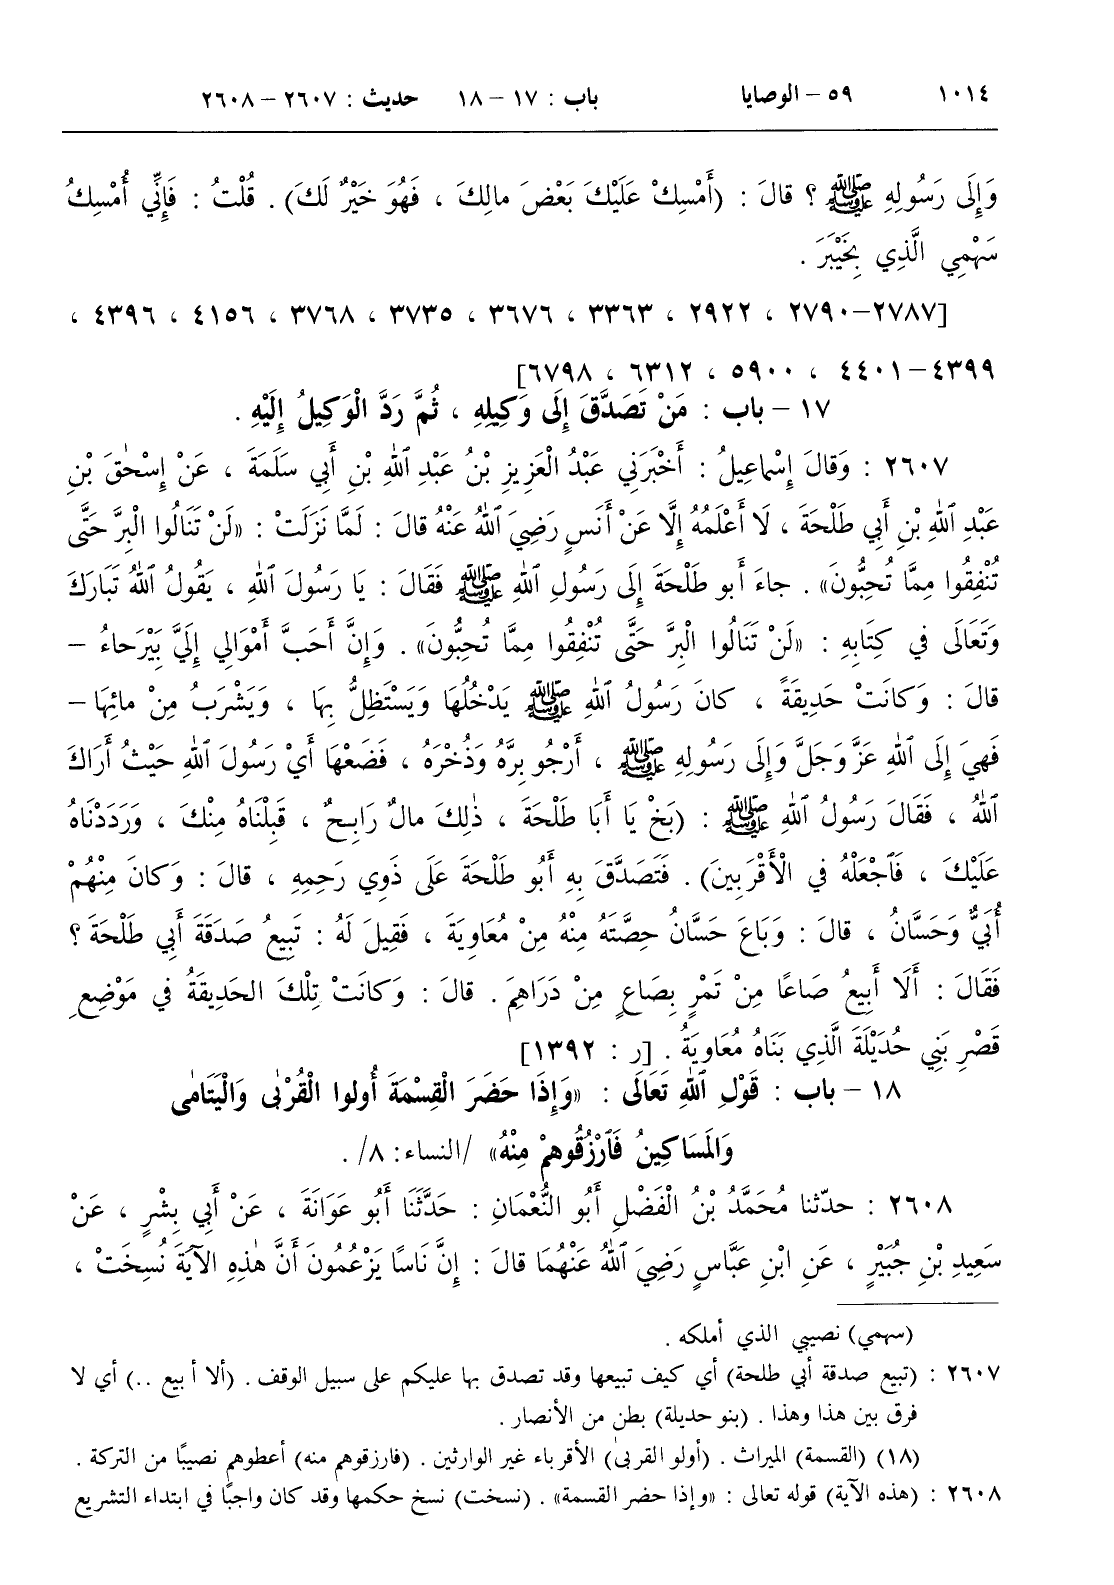 ١٠١٤ ٥٩ – الوصايا باب : ١٧ – ١٨ حديث : ٢٦٠٧ – ٢٦٠٨
وَإِلَى رَسُولِهِ ﷺ ؟ قالَ : (أَمْسِكْ عَلَيْكَ بَعْضَ مالِكَ ، فَهُوَ خَيْرٌ لَكَ) . قُلْتُ : فَإِنِّي أُمْسِكُ
سَهْمِي الَّذِي بِخَيْبَرَ .
[٢٧٨٧–٢٧٩٠ ، ٢٩٢٢ ، ٣٣٦٣ ، ٣٦٧٦ ، ٣٧٣٥ ، ٣٧٦٨ ، ٤١٥٦ ، ٤٣٩٦ ،
٤٣٩٩–٤٤٠١ ، ٥٩٠٠ ، ٦٣١٢ ، ٦٧٩٨]
١٧ – باب : مَنْ تَصَدَّقَ إِلَى وَكِيلِهِ ، ثُمَّ رَدَّ الْوَكِيلُ إِلَيْهِ .
٢٦٠٧ : وَقالَ إِسْماعِيلُ : أَخْبَرَنِي عَبْدُ الْعَزِيزِ بْنُ عَبْدِ ٱللهِ بْنِ أَبِي سَلَمَةَ ، عَنْ إِسْحٰقَ بْنِ
عَبْدِ ٱللهِ بْنِ أَبِي طَلْحَةَ ، لَا أَعْلَمُهُ إِلَّا عَنْ أَنَسٍ رَضِيَ ٱللهُ عَنْهُ قالَ : لَمَّا نَزَلَتْ : «لَنْ تَنَالُوا الْبِرَّ حَتَّى
تُنْفِقُوا مِمَّا تُحِبُّونَ» . جاءَ أَبو طَلْحَةَ إِلَى رَسُولِ ٱللهِ ﷺ فَقَالَ : يَا رَسُولَ ٱللهِ ، يَقُولُ ٱللهُ تَبَارَكَ
وَتَعَالَى في كِتَابِهِ : «لَنْ تَنَالُوا الْبِرَّ حَتَّى تُنْفِقُوا مِمَّا تُحِبُّونَ» . وَإِنَّ أَحَبَّ أَمْوَالِي إِلَيَّ بَيْرَحاءُ –
قالَ : وَكانَتْ حَدِيقَةً ، كانَ رَسُولُ ٱللهِ ﷺ يَدْخُلُهَا وَيَسْتَظِلُّ بِهَا ، وَيَشْرَبُ مِنْ مائِهَا–
فَهِيَ إِلَى ٱللهِ عَزَّ وَجَلَّ وَإِلَى رَسُولِهِ ﷺ ، أَرْجُو بِرَّهُ وَذُخْرَهُ ، فَضَعْهَا أَيْ رَسُولَ ٱللهِ حَيْثُ أَرَاكَ
ٱللهُ ، فَقَالَ رَسُولُ ٱللهِ ﷺ : (بَخْ يَا أَبَا طَلْحَةَ ، ذٰلِكَ مالٌ رَابِحٌ ، قَبِلْنَاهُ مِنْكَ ، وَرَدَدْنَاهُ
عَلَيْكَ ، فَٱجْعَلْهُ في الْأَقْرَبِينَ) . فَتَصَدَّقَ بِهِ أَبُو طَلْحَةَ عَلَى ذَوِي رَحِمِهِ ، قالَ : وَكانَ مِنْهُمْ
أُبَيٌّ وَحَسَّانُ ، قالَ : وَبَاعَ حَسَّانُ حِصَّتَهُ مِنْهُ مِنْ مُعَاوِيَةَ ، فَقِيلَ لَهُ : تَبِيعُ صَدَقَةَ أَبِي طَلْحَةَ ؟
فَقَالَ : أَلَا أَبِيعُ صَاعًا مِنْ تَمْرٍ بِصَاعٍ مِنْ دَرَاهِمَ . قالَ : وَكانَتْ تِلْكَ الحَدِيقَةُ في مَوْضِعِ
قَصْرِ بَنِي حُدَيْلَةَ الَّذِي بَنَاهُ مُعَاوِيَةُ . [ر : ١٣٩٢]
١٨ – باب : قَوْلِ ٱللهِ تَعَالَى : «وَإِذَا حَضَرَ الْقِسْمَةَ أُولُوا الْقُرْبٰى وَالْيَتَامٰى
وَالْمَسَاكِينُ فَٱرْزُقُوهمْ مِنْهُ» /النساء: ٨/ .
٢٦٠٨ : حدّثنا مُحَمَّدُ بْنُ الْفَضْلِ أَبُو النُّعْمَانِ : حَدَّثَنَا أَبُو عَوَانَةَ ، عَنْ أَبِي بِشْرٍ ، عَنْ
سَعِيدِ بْنِ جُبَيْرٍ ، عَنِ ابْنِ عَبَّاسٍ رَضِيَ ٱللهُ عَنْهُمَا قالَ : إِنَّ نَاسًا يَزْعُمُونَ أَنَّ هٰذِهِ الآيَةَ نُسِخَتْ ،
(سهمي) نصيبي الذي أملكه .
٢٦٠٧ : (تبيع صدقة أبي طلحة) أي كيف تبيعها وقد تصدق بها عليكم على سبيل الوقف . (ألا أبيع ..) أي لا
فرق بين هذا وهذا . (بنو حديلة) بطن من الأنصار .
(١٨) (القسمة) الميراث . (أولو القربى) الأقرباء غير الوارثين . (فارزقوهم منه) أعطوهم نصيبًا من التركة .
٢٦٠٨ : (هذه الآية) قوله تعالى : «وإذا حضر القسمة» . (نسخت) نسخ حكمها وقد كان واجبًا في ابتداء التشريع